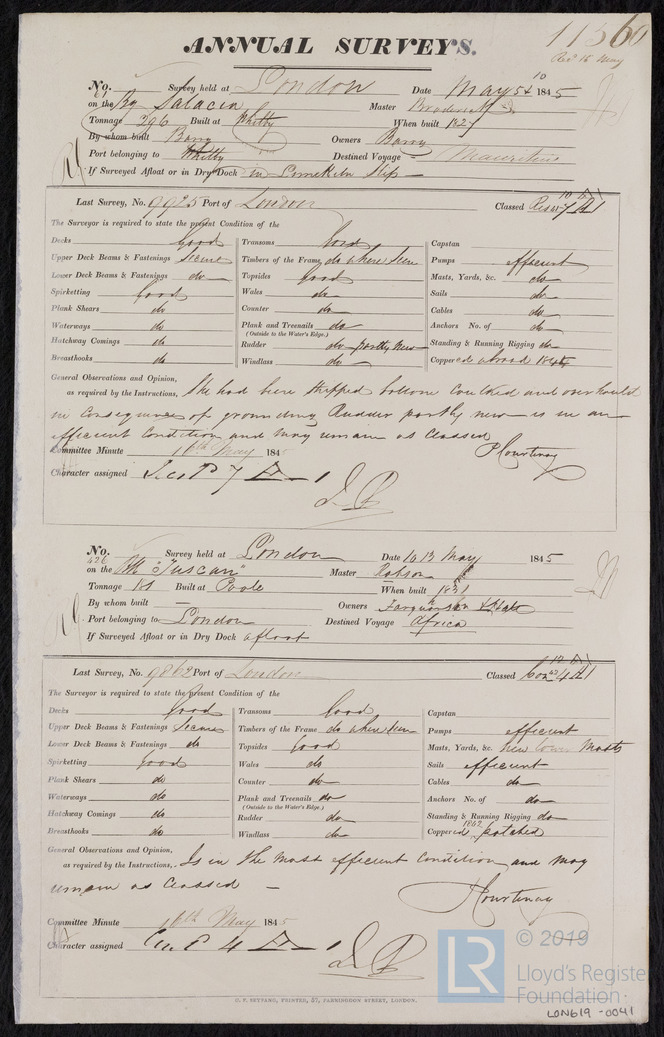 11560
Rec 15 May
ANNUAL SURVEYS.
No. 61 Survey held at London Date May 5 & 10 1845
on the Bg Salacia Master Broderick
Tonnage 296 Built at Whitby When built 1827
By whom built Barry Owners Barry
Port belonging to Whitby Destined Voyage Mauritius
If Surveyed Afloat or in Dry Dock in Limekiln Slip
Last Survey, No. 9925 Port of London Classed 7 A1
The Surveyor is required to state the present Condition of the
Decks Good Transoms Good Capstan
Upper Deck Beams & Fastenings Secure Timbers of the Frame do where seen Pumps efficient
Lower Deck Beams & Fastenings do Topsides Good Masts, Yards, &c. do
Spirketting Good Wales do Sails do
Plank Shears do Counter do Cables do
Waterways do Plank and Treenails do Anchors No. of do
(Outside to the Water's Edge.)
Hatchway Comings do Rudder do partly new Standing & Running Rigging do
Breasthooks do Windlass do Coppered abroad
General Observations and Opinion,
as required by the Instructions, She had been stripped bottom caulked and overhauled
in consequence of grounding Rudder partly new is in an
efficient Condition and may remain as Classed
P Courtenay
Committee Minute 16th May 1845
Character assigned 7 A 1
No. 426 Survey held at London Date 10 13 May 1845
on the "Tuscan" Master Robson
Tonnage Built at Poole When built 1831
By whom built — Owners
Port belonging to London Destined Voyage Africa
If Surveyed Afloat or in Dry Dock afloat
Last Survey, No. 9862 Port of London Classed Con 4 A1
The Surveyor is required to state the present Condition of the
Decks Good Transoms Good Capstan
Upper Deck Beams & Fastenings Secure Timbers of the Frame do where seen Pumps efficient
Lower Deck Beams & Fastenings do Topsides Good Masts, Yards, &c. new lower Masts
Spirketting Good Wales do Sails efficient
Plank Shears do Counter do Cables do
Waterways do Plank and Treenails do Anchors No. of do
(Outside to the Water's Edge.)
Hatchway Comings do Rudder do Standing & Running Rigging do
Breasthooks do Windlass do Coppered 1842 patched
General Observations and Opinion,
as required by the Instructions, Is in the most efficient condition and may
remain as Classed —
P Courtenay
Committee Minute 16th May 1845
Character assigned Con 4 A 1
C. F. SEYFANG, PRINTER, 57, FARRINGDON STREET, LONDON.
LR © 2019
Lloyd's Register
Foundation
LON619-0041